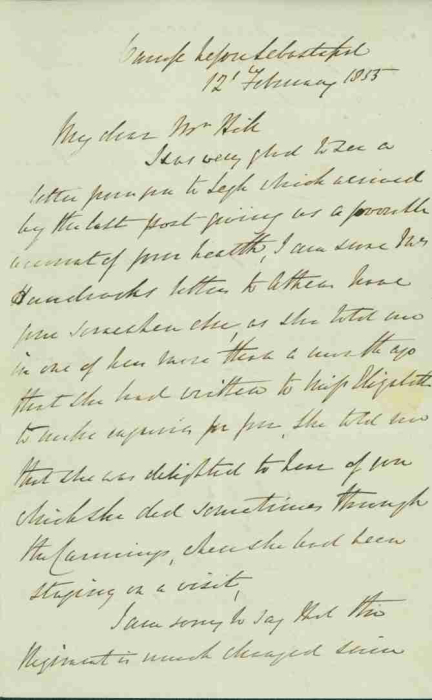 Camp before Sebastopol
12' February 1855
My dear Mrs Hill
I was very glad to see a
letter from you to Legh which arrived
by the last post giving us a favourable
account of your health, I am sure Mrs
letters to Athens have
gone somewhere else, as she told me
in one of hers more than a month ago
that she had written to Miss Elizabeth
to make enquiries for you, she told me
that she was delighted to hear of you
which she did sometimes through
the Cannings, where she had been
staying on a visit,
I am sorry to say that the
Regiment is much changed since